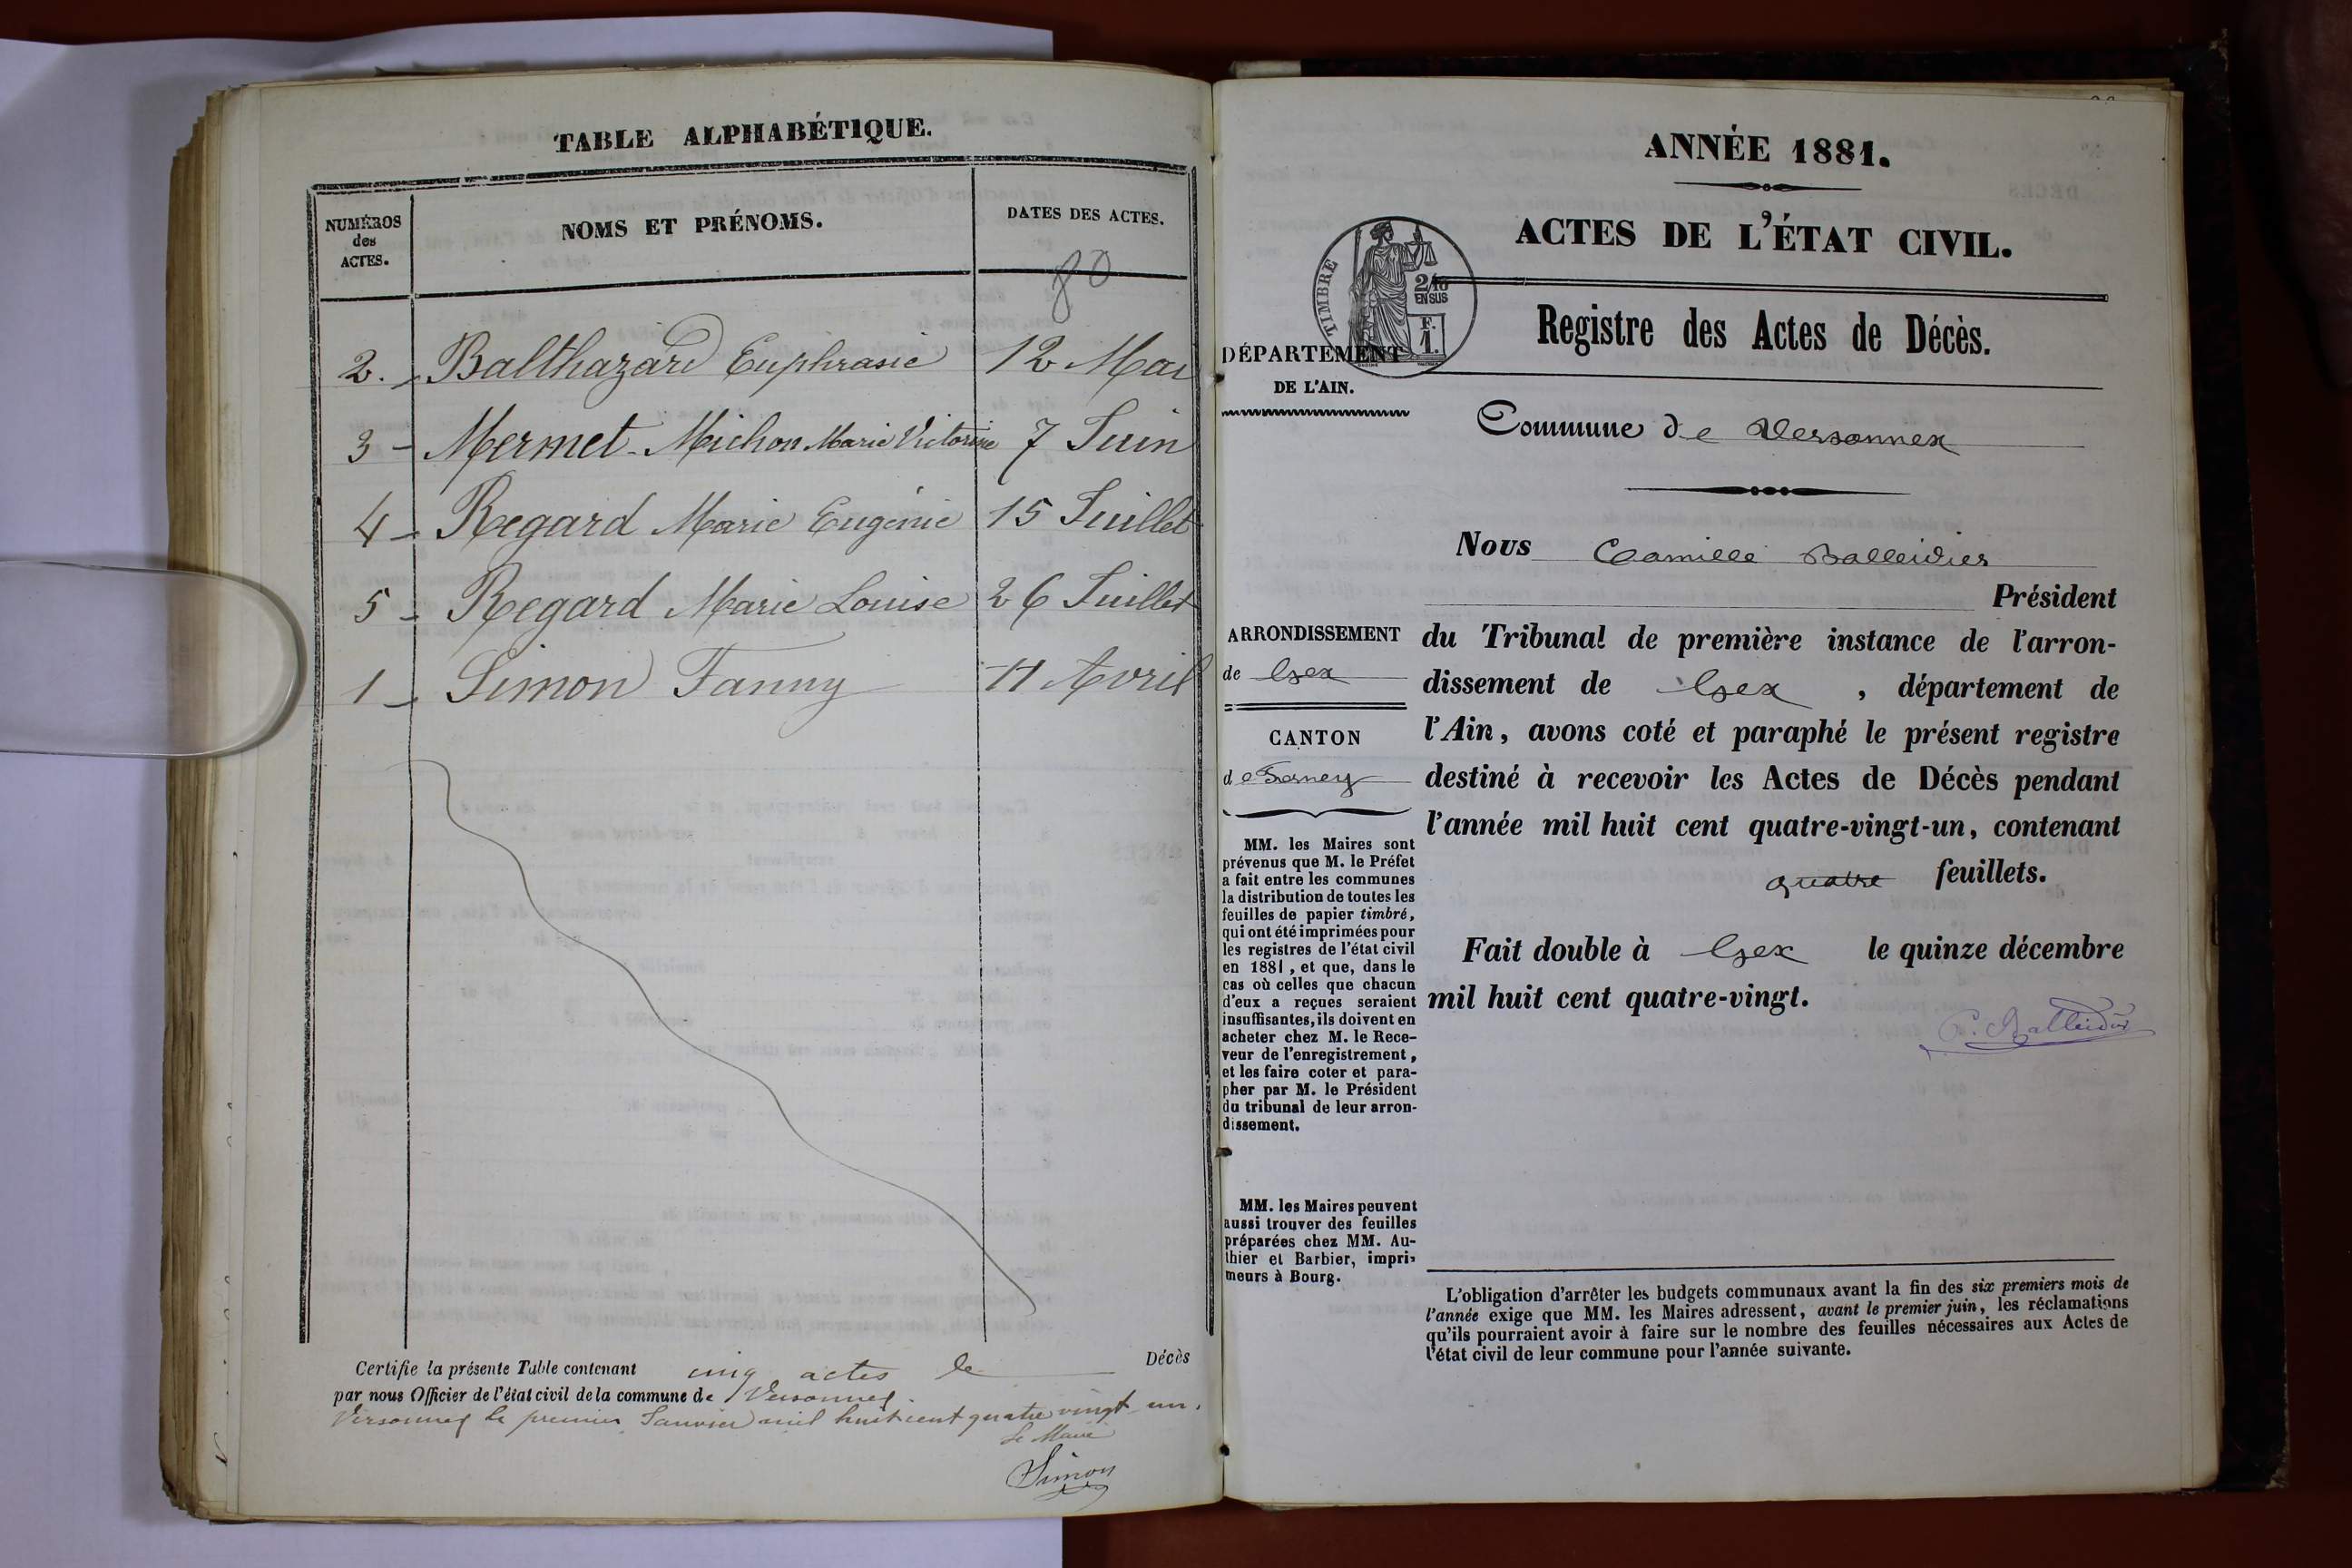 TABLE ALPHABÉTIQUE.
NUMÉROS
des
ACTES.
NOMS ET PRÉNOMS.
DATES DES ACTES.
80
2. Balthazard Euphrasie 12 Mai
3 - Mermet-Michon Marie Victorine 7 Juin
4 - Regard Marie Eugénie 15 Juillet
5 - Regard Marie Louise 26 Juillet
1 - Simon Fanny 11 Avril
Certifie la présente Table contenant cinq actes de Décès
par nous Officier de l'état civil de la commune de Versonnex.
Versonnex le premier Janvier mil huit cent quatre vingt-un.
Le Maire
Simon
ANNÉE 1881.
ACTES DE L'ÉTAT CIVIL.
TIMBRE
2/10
EN SUS
F.
1.
Registre des Actes de Décès.
DÉPARTEMENT
DE L'AIN.
Commune de Versonnex
Nous Camille Balleidier
Président
ARRONDISSEMENT
de Gex
CANTON
de Ferney
du Tribunal de première instance de l'arron-
dissement de Gex , département de
l'Ain, avons coté et paraphé le présent registre
destiné à recevoir les Actes de Décès pendant
l'année mil huit cent quatre-vingt-un, contenant
quatre feuillets.
Fait double à Gex le quinze décembre
mil huit cent quatre-vingt.
C. Balleidier
MM. les Maires sont
prévenus que M. le Préfet
a fait entre les communes
la distribution de toutes les
feuilles de papier timbré,
qui ont été imprimées pour
les registres de l'état civil
en 1881, et que, dans le
cas où celles que chacun
d'eux a reçues seraient
insuffisantes, ils doivent en
acheter chez M. le Rece-
veur de l'enregistrement,
et les faire coter et para-
pher par M. le Président
du tribunal de leur arron-
dissement.
MM. les Maires peuvent
aussi trouver des feuilles
préparées chez MM. Au-
thier et Barbier, impri-
meurs à Bourg.
L'obligation d'arrêter les budgets communaux avant la fin des six premiers mois de
l'année exige que MM. les Maires adressent, avant le premier juin, les réclamations
qu'ils pourraient avoir à faire sur le nombre des feuilles nécessaires aux Actes de
l'état civil de leur commune pour l'année suivante.